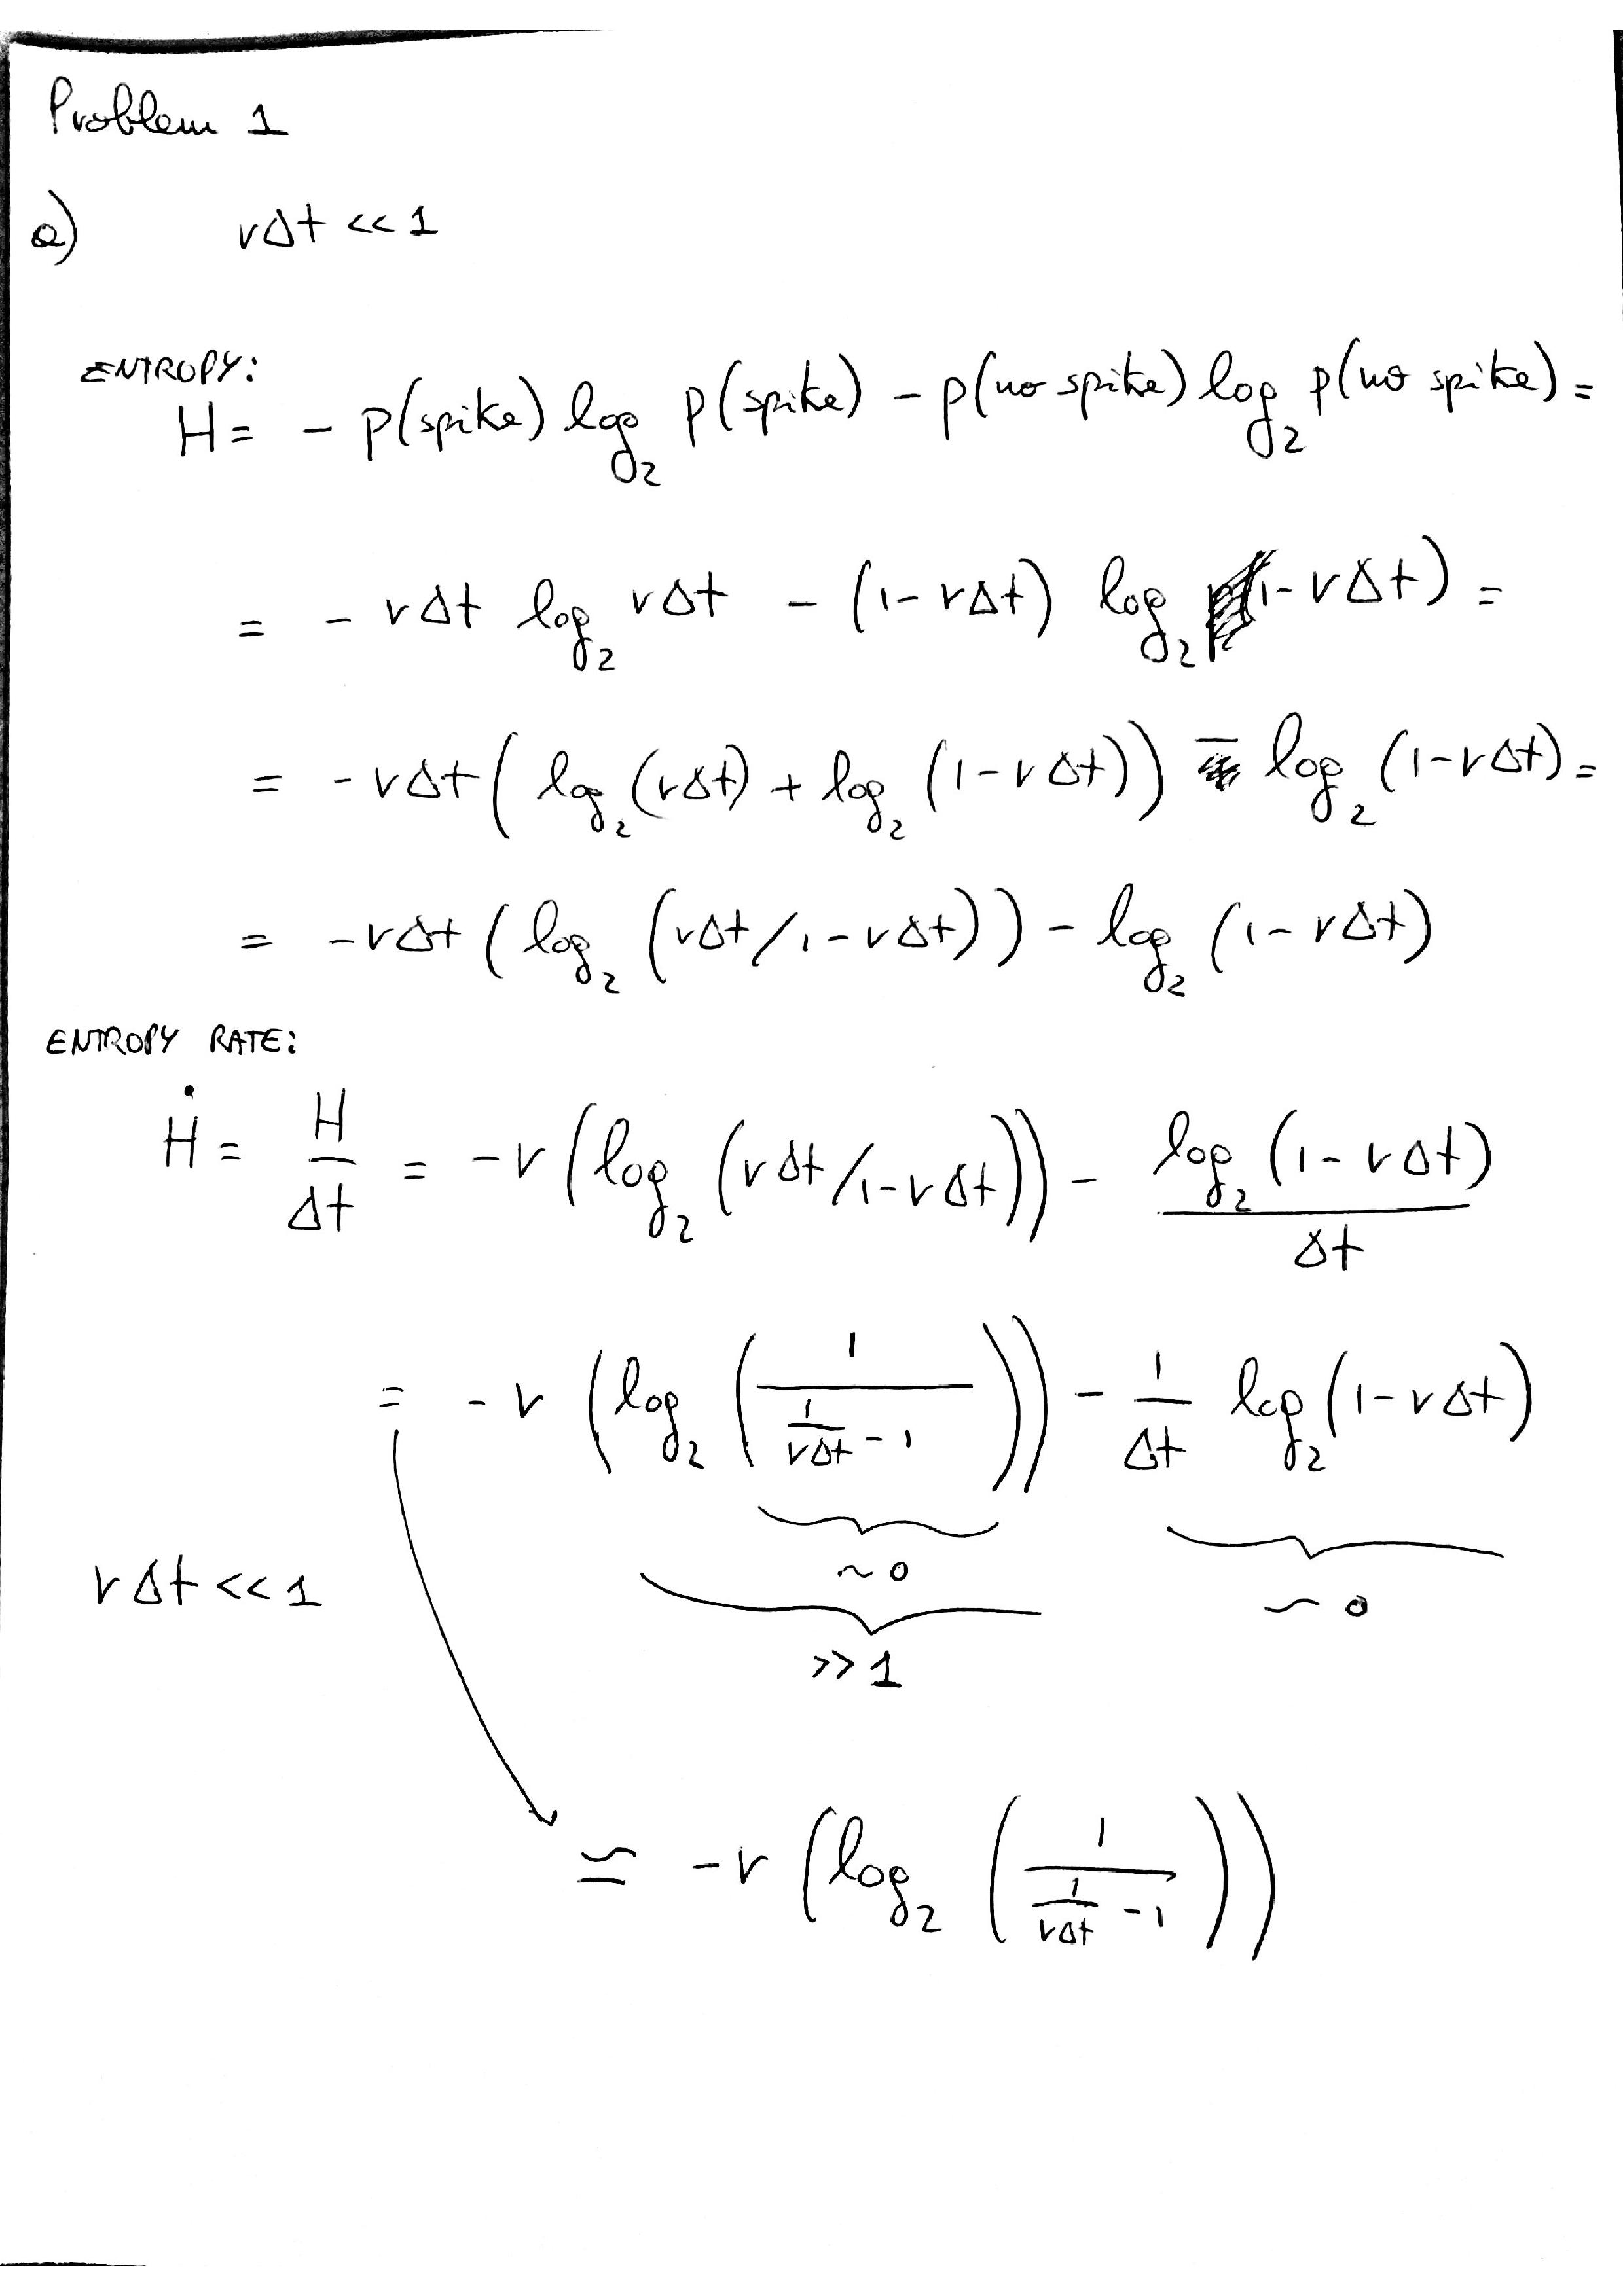 Problem 1
a) rΔt << 1
ENTROPY:
H = - p(spike) log₂ p(spike) - p(no spike) log₂ p(no spike) =
= - rΔt log₂ rΔt - (1-rΔt) log₂ (1-rΔt) =
= - rΔt ( log₂ (rΔt) + log₂ (1-rΔt)) - log₂ (1-rΔt) =
= -rΔt ( log₂ (rΔt/1-rΔt)) - log₂ (1-rΔt)
ENTROPY RATE:
Ḣ = H/Δt = -r (log₂ (rΔt/1-rΔt)) - log₂ (1-rΔt)/Δt
= -r (log₂ (1/(1/rΔt - 1))) - 1/Δt log₂ (1-rΔt)
~0
rΔt << 1 ~0
>> 1
≃ -r (log₂ (1/(1/rΔt - 1)))